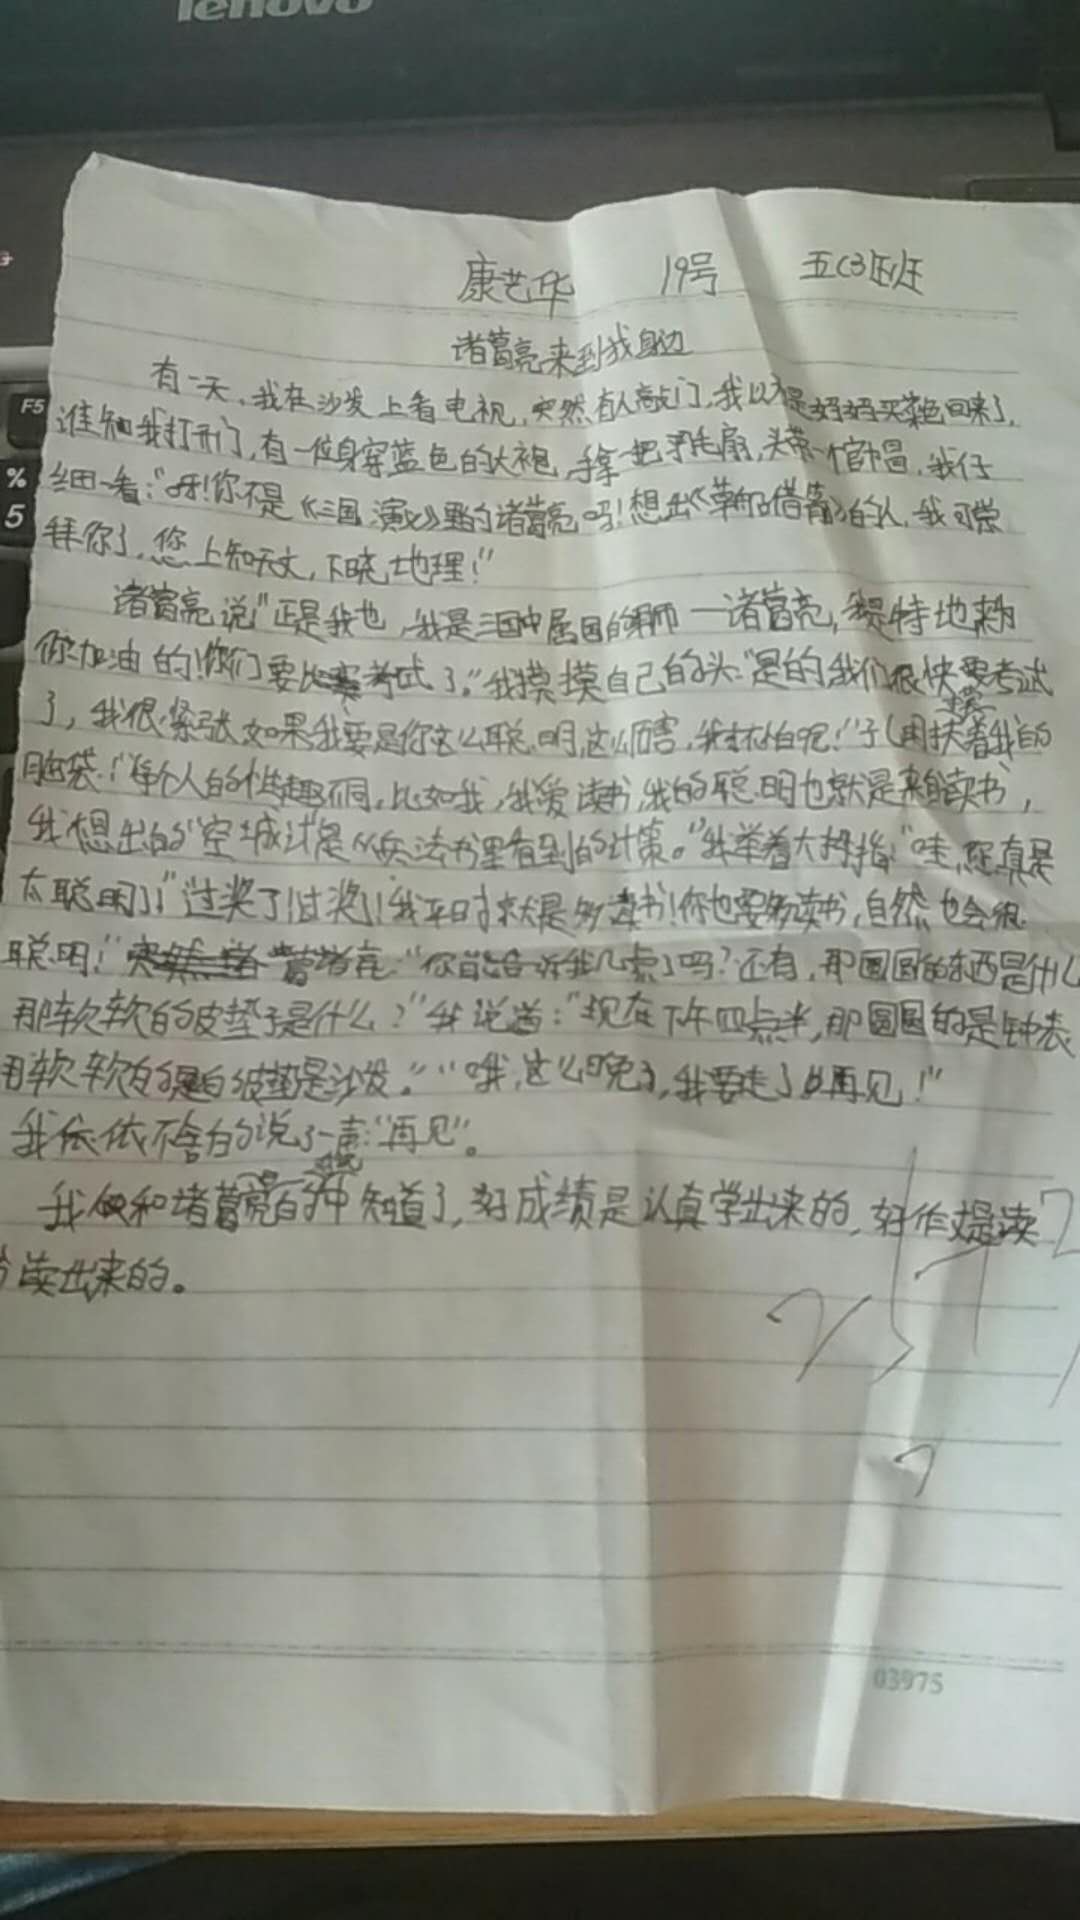 lenovo
F5
%
5
康艺华 19号 五(3)班
诸葛亮来到我身边
有一天,我在沙发上看电视,突然有人敲门,我以为是妈妈买菜回来了,
谁知我打开门,有一位身穿蓝色的大袍,手拿一把羽毛扇,头带一个官帽,我仔
细一看:"呀!你不是《三国演义》里的诸葛亮吗!想出《草船借箭》的人,我可崇
拜你了,您上知天文,下晓地理!"
诸葛亮说"正是我也,我是三国中属国的军师一诸葛亮,我是特地来为
你加油的!你们要比赛考试了。"我摸摸自己的头:"是的,我们很快要考试
了,我很紧张如果我要是你这么聪明,这么厉害,我才不怕呢!"用扶着我的
脑袋!"每个人的性趣不同,比如我,我爱读书,我的聪明也就是来自读书,
我想出的"空城计"是从兵法书里看到的计策。"我举着大拇指"哇,您真是
太聪明了!""过奖了!过奖!我平时就是多读书!你也要多读书,自然也会很
聪明!" "你能告诉我几点了吗?还有,那圆圆的东西是什么
那软软的皮垫子是什么?"我说道:"现在下午四点半,那圆圆的是钟表
那软软的是皮垫是沙发。""哦,这么晚了,我要走了,再见!"
我依依不舍的说了一声"再见"。
我和诸葛亮的中知道了,好成绩是认真学出来的,好作文是读
读出来的。
03975